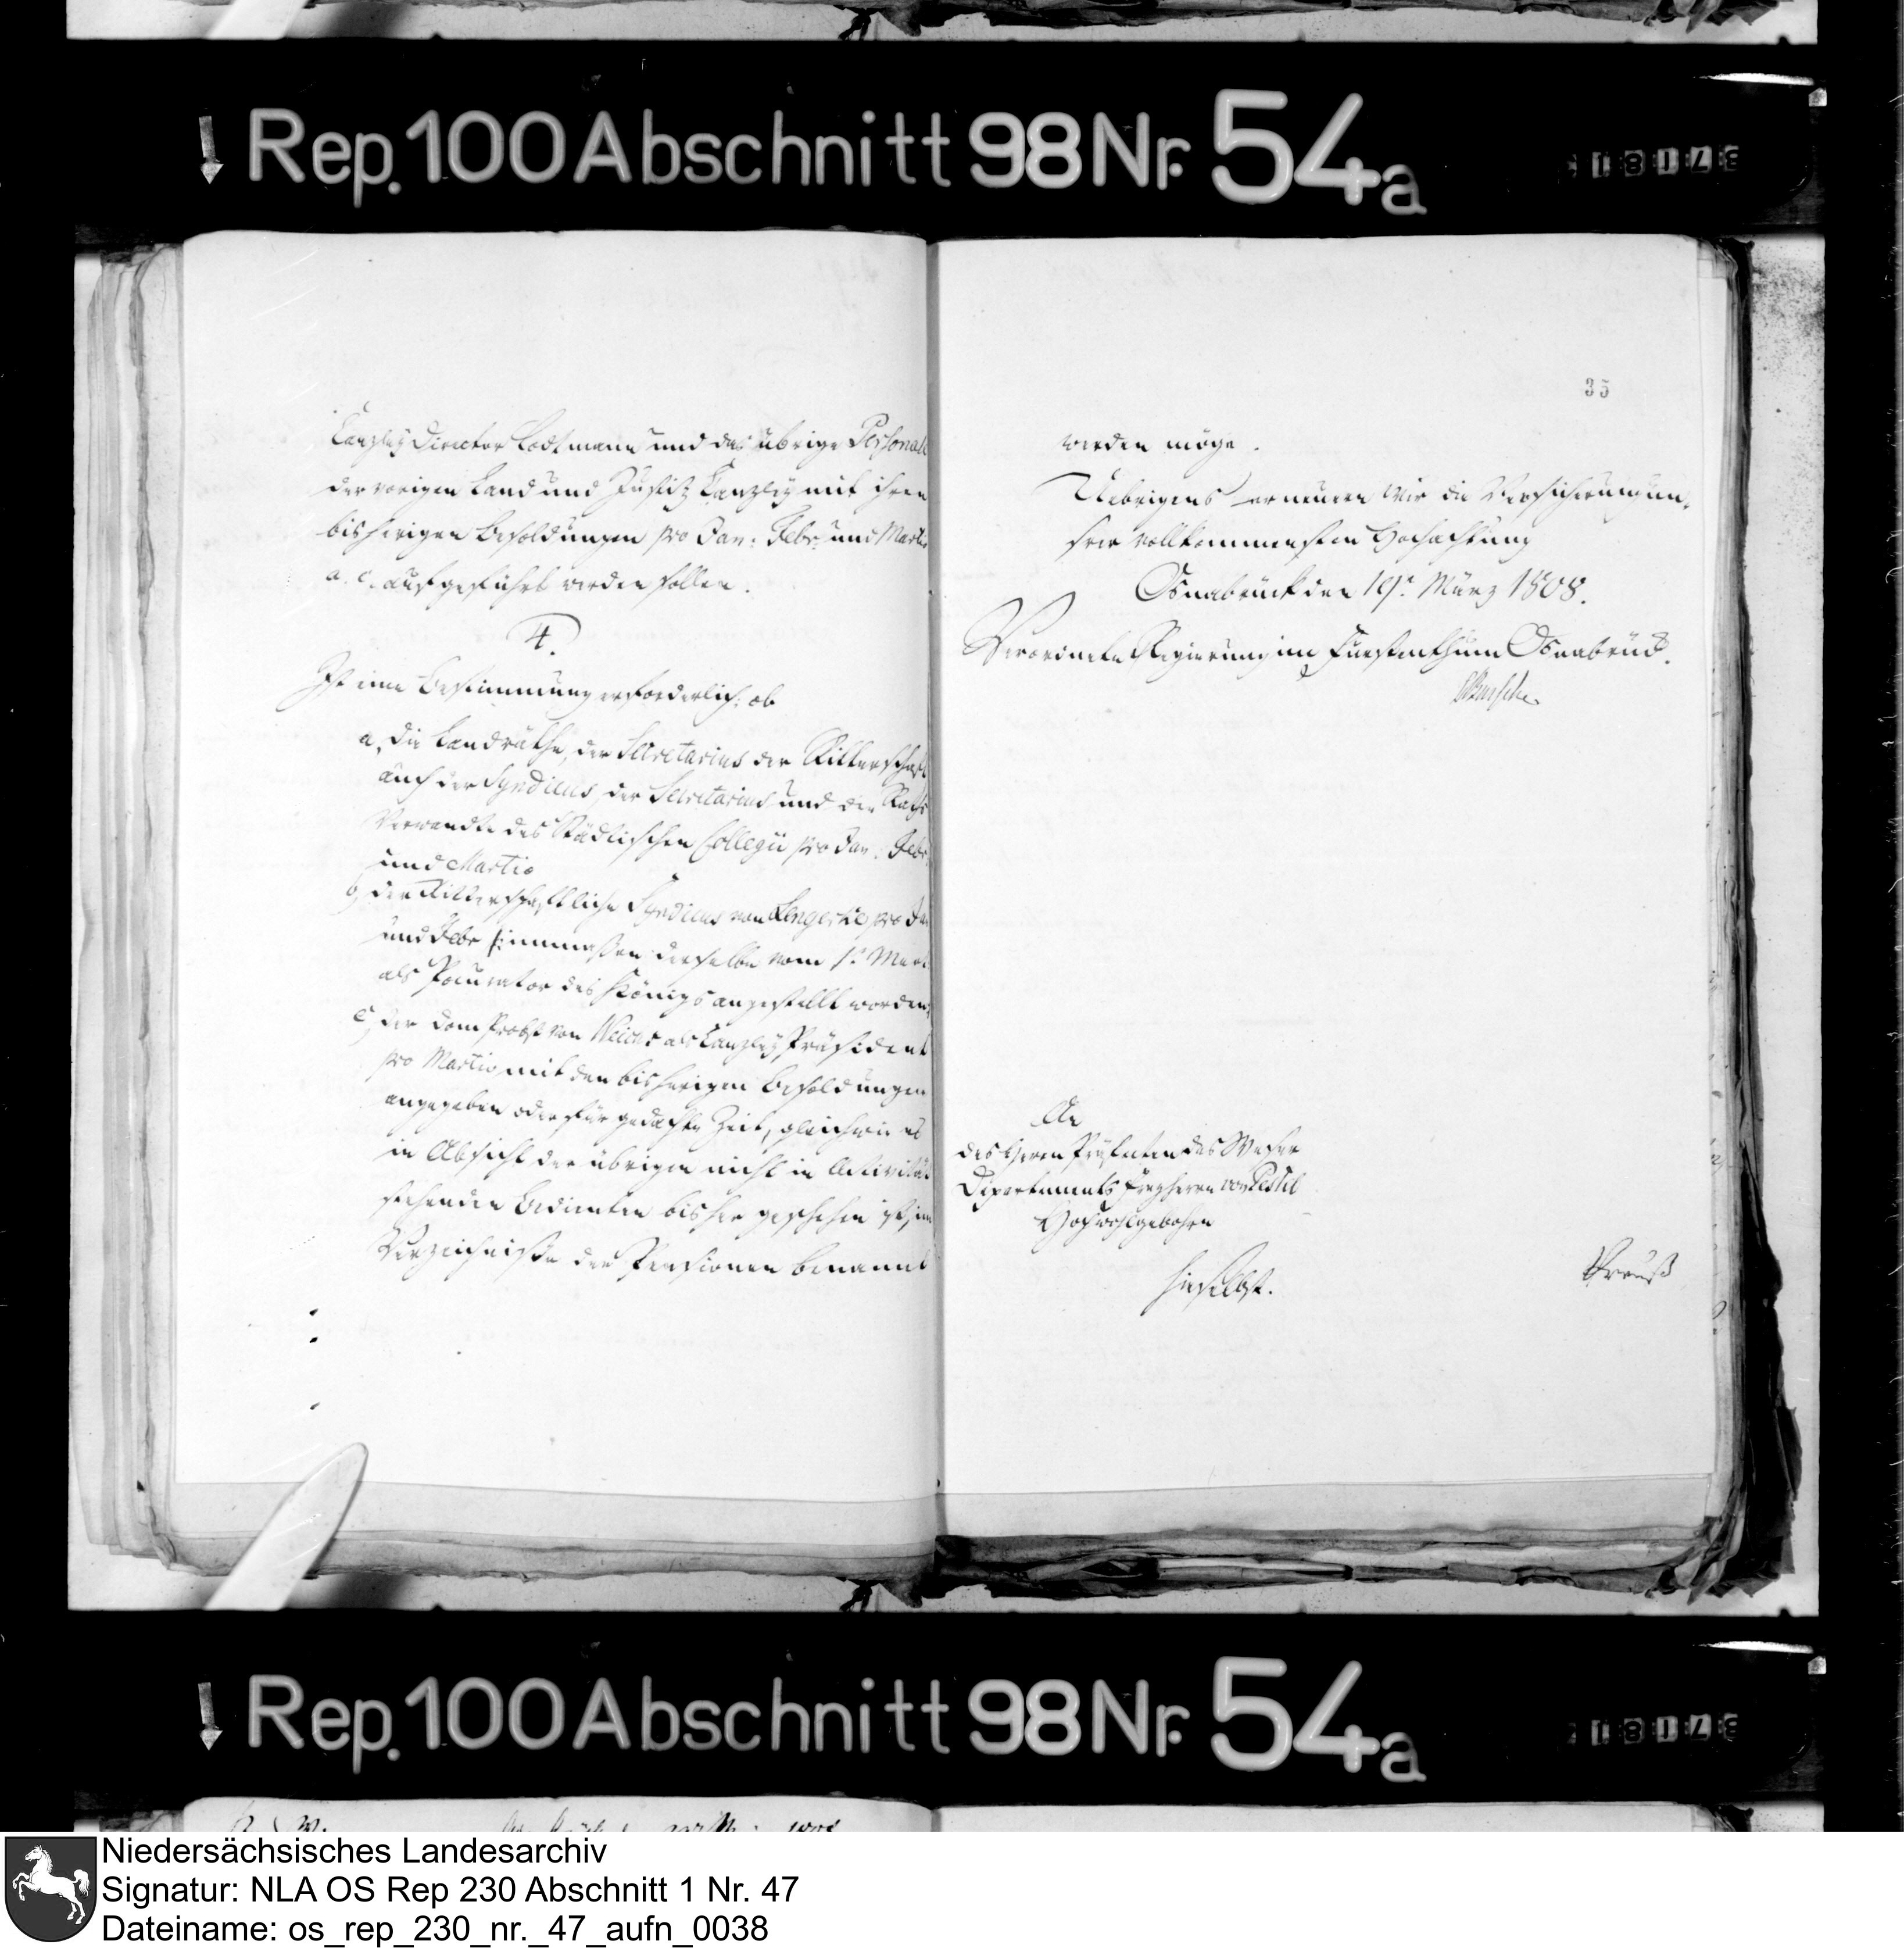 Rep. 100 Abschnitt 98 Nr. 54a
Canzley Director Lodtmann und das übrige Personale
der vorigen Land und Justitz Canzley mit ihren
bisherigen Besoldungen pro Jan: Febr: und Martio
a. c. aufgeführt werden sollen.
4.
Ist eine Bestimmung erforderlich: ob
a, die Landräthe, der Secretarius der Ritterschaft
auch der Syndicus, der Secretarius und die Raths
Verwandte des Städtischen Collegii pro Jan: Febr:
und Martio
b, der Ritterschaftliche Syndicus von Lengerke pro Jan
und Febr immaßen derselbe vom 1. Mart
als Procurator des Königs angestellt worden,
c, der Dom Probst von als Canzley Präsident
pro Martio mit den bisherigen Besoldungen
angegeben oder für gedachte Zeit, gleichwie es
in Absicht der übrigen nicht in Activität
stehenden Bedienten bisher geschehen ist, im
Verzeichniße der Pensionen benannt
35
werden möge.
Uebrigens erneuern Wir die Versicherung un-
srer vollkommensten Hochachtung
Osnabrück den 19. März 1808.
Verordnete Regierung im Fürstenthum Osnabrück.
An
des Herrn Präfecten des Weser
Departements Freyherrn von Pestel
Hochwohlgebohren
hieselbst.
Rep. 100 Abschnitt 98 Nr. 54a
Niedersächsisches Landesarchiv
Signatur: NLA OS Rep 230 Abschnitt 1 Nr. 47
Dateiname: os_rep_230_nr._47_aufn_0038